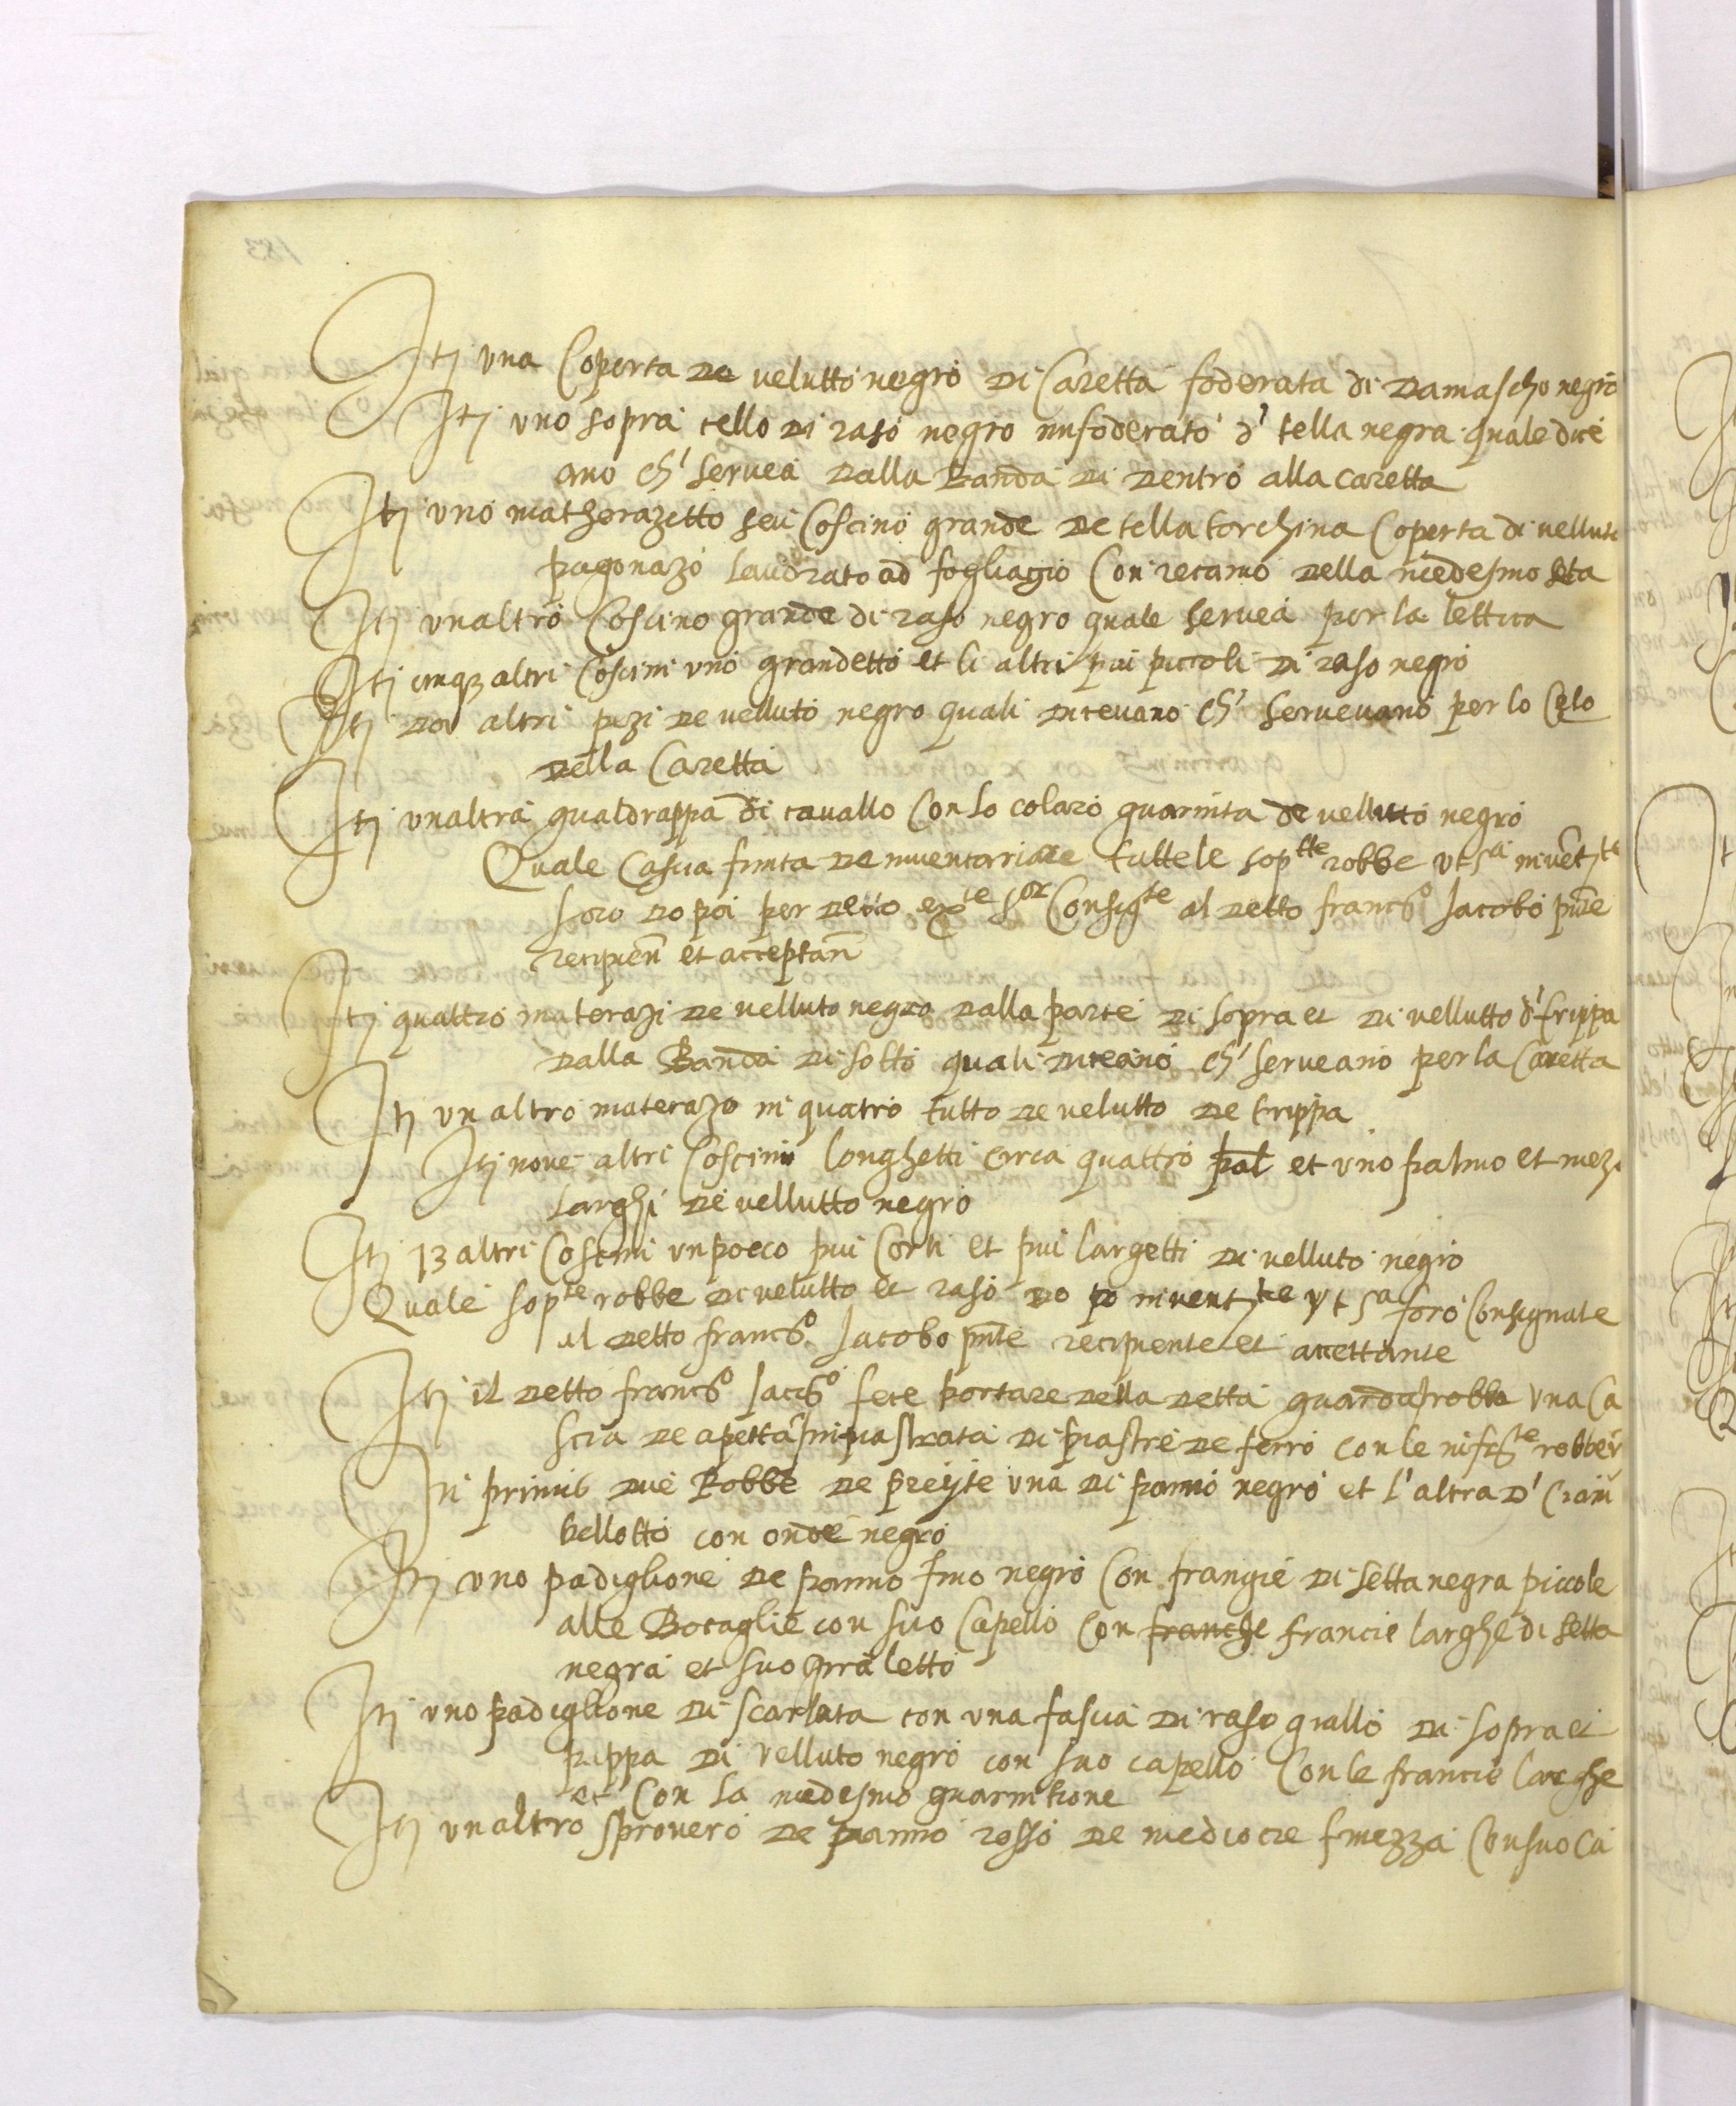 Itj una Coperta de velutto negro di Caretta foderata di damascho negro
Itj uno sopra cello di raso negro infoderato d' tella negra quale dice
ano ch' servea dalla Banda di dentro alla caretta
Itj uno matherazetto seu Coscino grande de tella torchina Coperta di vellutt
pagonazo lavorato ad fogliagio Con recamo della medesmo seta
Itj unaltro Coscino grande di raso negro quale servea per la lettica
Itj cinq3 altri Coscini uno grandetto et li altri piu piccoli di raso negro
Itj doi altri pezi de velluto negro quali dicevano ch' servevano per lo Celo
della Caretta
Itj unaltra gualdrappa di cavallo Con lo colaro guarnita de vellutto negro
Quale Cascia finita de inventariare tutte le sop^tte robbe ut s^a invẽt^te
foro do poi per detto ex^te s^or Consig^te al detto franc^o Jacobo pnte
recipien et acceptan
Itj quattro materazi de velluto negro dalla parte di sopra et di vellutto d' trippa
dalla Banda di sotto quali diceano ch' serveano per la Caretta
Itj un altro materazo in quatro tutto de velutto de trippa
Itj nove altri Coscini longhetti circa quattro pal et uno palmo et mezo
larghi de vellutto negro
Itj 13 altri Coscini un poeco piu Corti et piu largetti di velluto negro
Quale sop^te robbe de velutto et raso do po invent^te ut s^a foro Consignate
al detto franc^o Jacobo pnte recipiente et accettante
Itj il detto franc^o Jac^o fece portare della detta guardarobba una Ca
scia de apetta inpiastrata di piastre de ferro con le infr^te robbe v
In primis due Robbe de preyte una di panno negro et l'altra d' Ciam
bellotto con onde negro
Itj uno padiglione de panno fino negro Con frangie di setta negra piccole
alle Bocaglie con suo Capello Con franche francie larghe di setta
negra et suo sopra letto
Itj uno padiglione di scarlata con una fascia di raso giallo di sopra et
pippa di velluto negro con suo capello Con le francie larghe
et Con la medesmo guarnitione
Itj unaltro sprovero de panno rosso de mediocre finezza Con suo Ca